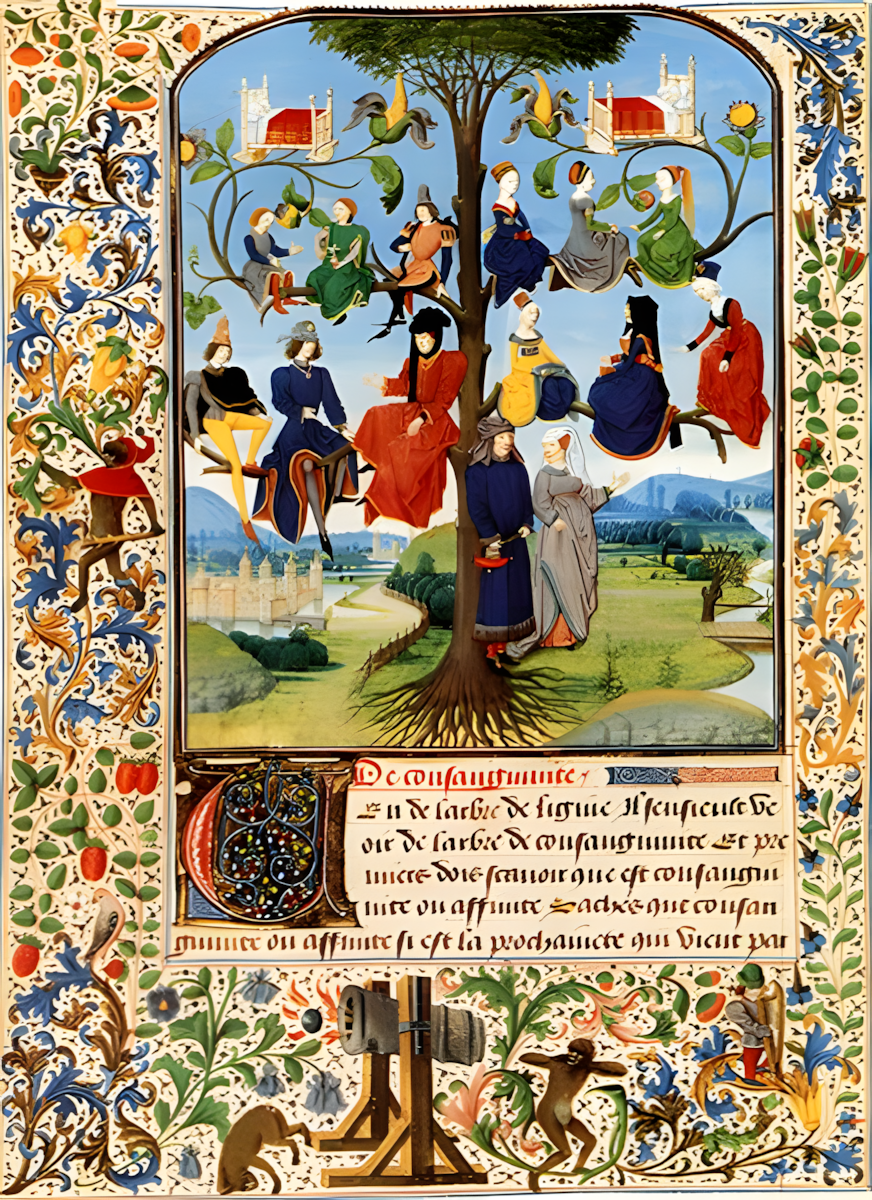 De consanguinite
VEu de larbre de lignie Il sensieult ve
oir de larbre de consanguinite Et pre
miers dois scauoir que est consangui
nite ou affinite Sachies que consan
guinite ou affinite si est la prochainete qui vient par